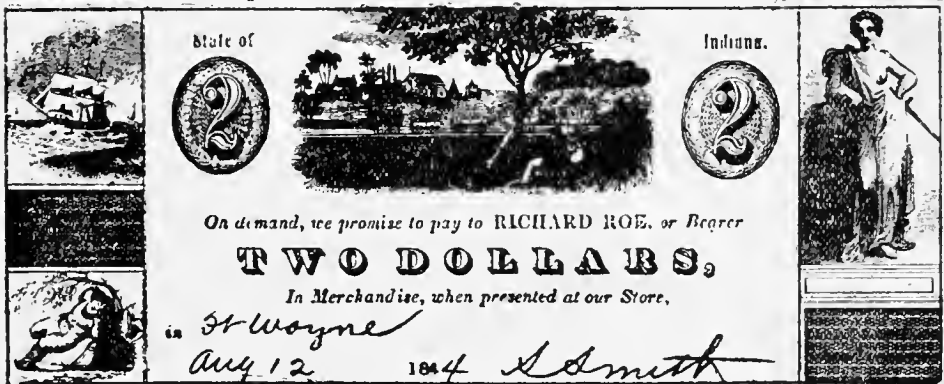 State of Indiana.
2 2
On demand, we promise to pay to RICHARD ROE. or Bearer
TWO DOLLARS,
In Merchandise, when presented at our Store,
in Ft Wayne
Aug 12 1844 S Smith